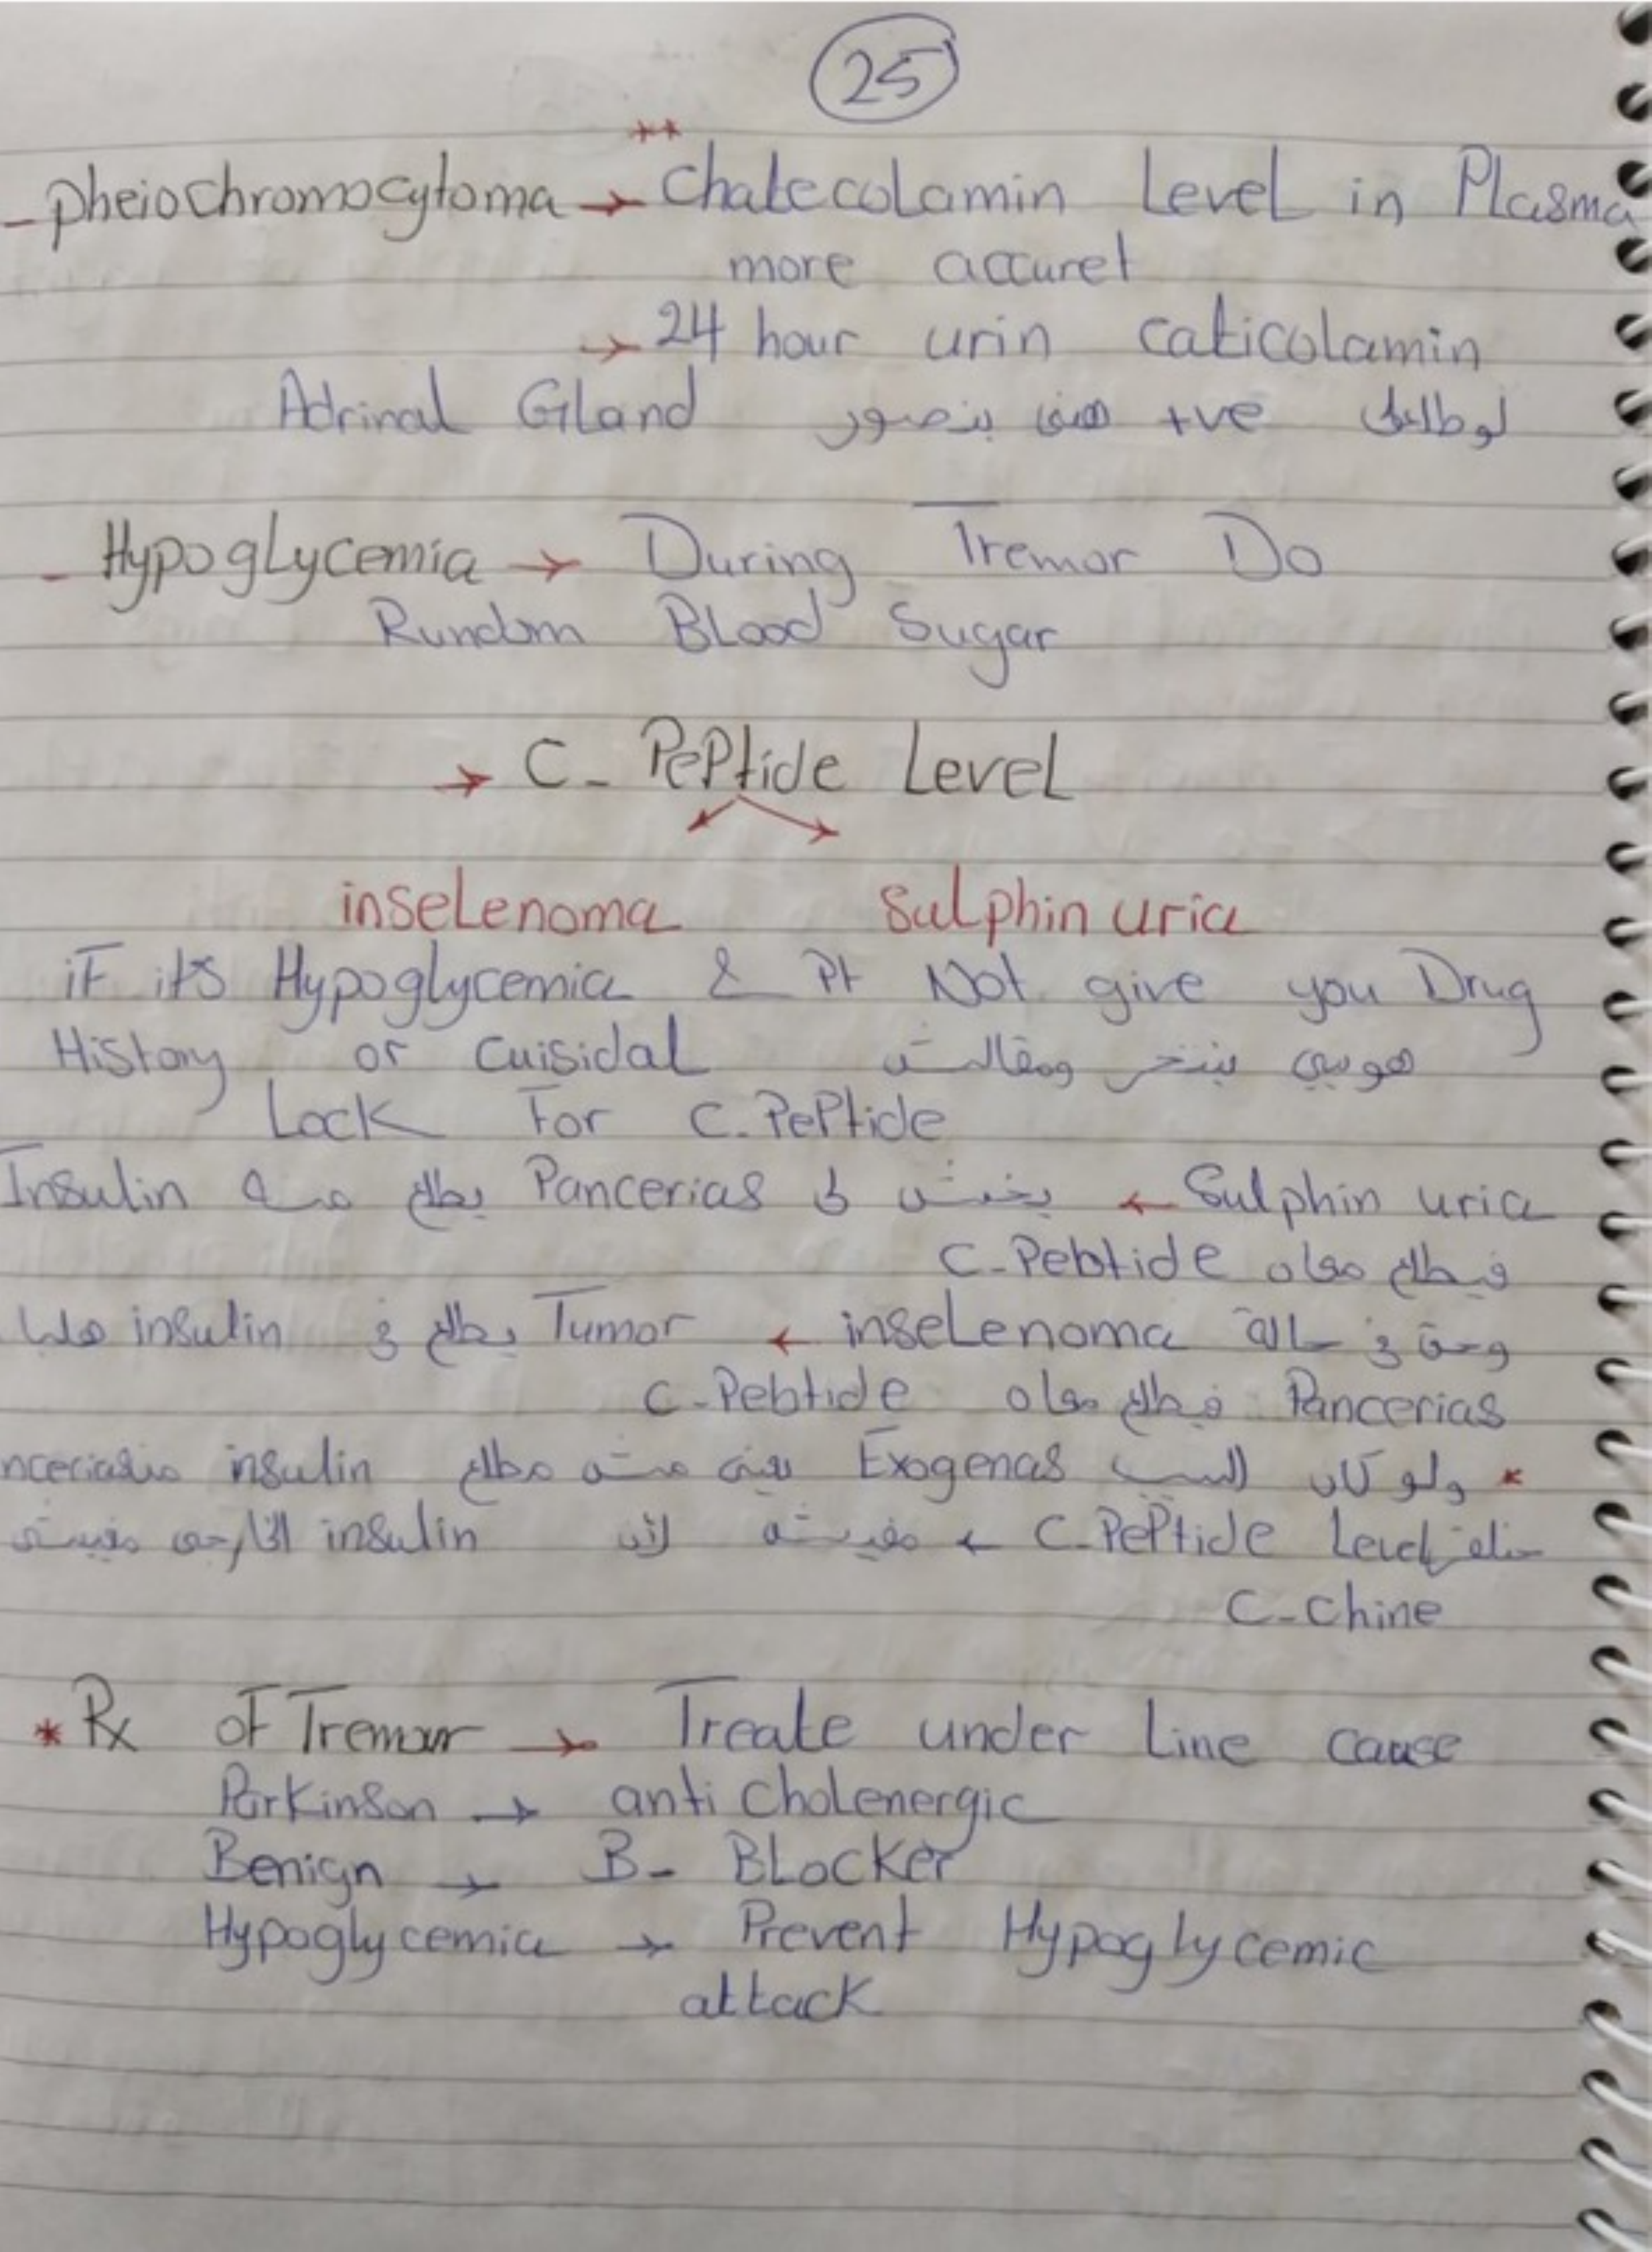 25
- pheiochromocytoma → ** Chatecolamin Level in Plasma
more accuret
→ 24 hour urin caticolamin
لو طلعت +ve هنا بنصور Adrinal Gland
- Hypoglycemia → During Tremor Do
Rundom Blood Sugar
→ C- Peptide Level
inselenoma sulphin uria
if its Hypoglycemia & Pt Not give you Drug
History or Cuisidal ومقالتش
Lock For C.Peptide
Sulphin uria ← يخش ل Pancerias يطلع منه Insulin
فيطلع معاه C-Pebtide
وحتى في حالة inselenoma ← Tumor يطلع في insulin
Pancerias فيطلع معاه C-Pebtide
* ولو كان السبب Exogenas يعني مش مطلع insulin
C.Peptide Level ← مفيش لأن insulin الخارجي مفيش
C-Chine
* Rx of Tremor → Treate under Line cause
Parkinson → anti cholenergic
Benign → B- Blocker
Hypoglycemia → Prevent Hypoglycemic
attack